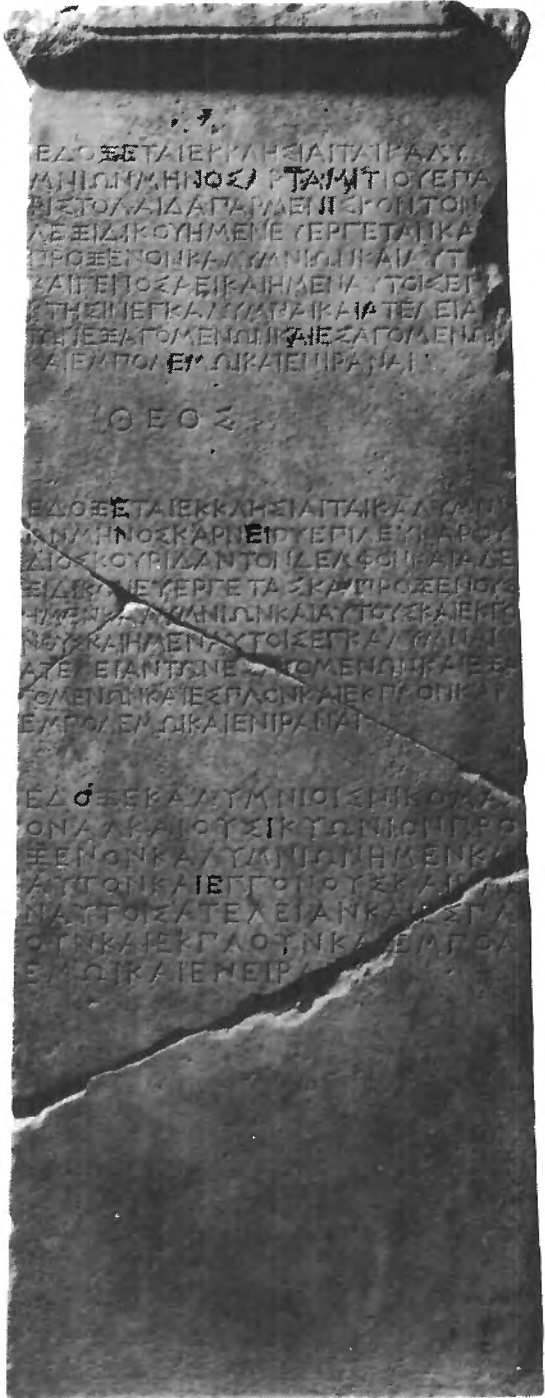 ΕΔΟΞΕΤΑΙΕΚΚΛΗΣΙΑΙΤΑΙΚΑΛΥ
ΜΝΙΩΝΜΗΝΟΣΑΡΤΑΜΙΤΙΟΥΕΠΑ
ΡΙΣΤΟΛΑΙΔΑΠΑΡΜΕΝΙΣΚΟΝΤΟΝ
ΛΕΞΙΔΙΚΟΥΗΜΕΝΕΥΕΡΓΕΤΑΝΚΑ
ΠΡΟΞΕΝΟΝΚΑΛΥΜΝΙΩΝΚΑΙΑΥΤ
ΚΑΙΓΕΝΟΣΑΕΙΚΑΙΗΜΕΝΑΥΤΟΙΣΕΓ
ΚΤΗΣΙΝΕΓΚΑΛΥΜΝΑΙΚΑΙΑΤΕΛΕΙΑ
ΤΩΝΕΞΑΓΟΜΕΝΩΝΚΑΙΕΣΑΓΟΜΕΝΩ
ΚΑΙΕΜΠΟΛΕΜΩΙΚΑΙΕΝΙΡΑΝΑΙ
ΘΕΟΣ
ΕΔΟΞΕΤΑΙΕΚΚΛΗΣΙΑΙΤΑΙΚΑΛΥΜΝΙ
ΩΝΜΗΝΟΣΚΑΡΝΕΙΟΥΕΠΙΛΕΥΚΑΡΟΥ
ΔΙΟΣΚΟΥΡΙΔΑΝΤΟΝΔΕΛΦΟΝΚΑΙΑΛΕ
ΞΙΔΙΚΟΝΕΥΕΡΓΕΤΑΣΚΑΙΠΡΟΞΕΝΟΥΣ
ΗΜΕΝΚΑΛΥΜΝΙΩΝΚΑΙΑΥΤΟΥΣΚΑΙΕΚΓΟ
ΝΟΥΣΚΑΙΗΜΕΝΑΥΤΟΙΣΕΓΚΑΛΥΜΝΑΙ
ΑΤΕΛΕΙΑΝΤΩΝΕΣΑΓΟΜΕΝΩΝΚΑΙΕΞΑ
ΓΟΜΕΝΩΝΚΑΙΕΣΠΛΟΝΚΑΙΕΚΠΛΟΝΚΑΙ
ΕΜΠΟΛΕΜΩΙΚΑΙΕΝΙΡΑΝΑΙ
ΕΔΟΞΕΚΑΛΥΜΝΙΟΙΣΝΙΚΟΜΑΧ
ΟΝΑΛΚΑΙΟΥΣΙΚΥΩΝΙΟΝΠΡΟ
ΞΕΝΟΝΚΑΛΥΜΝΙΩΝΗΜΕΝΚΑ
ΑΥΤΟΝΚΑΙΕΓΓΟΝΟΥΣΚΑΙΗΜΕ
ΝΑΥΤΟΙΣΑΤΕΛΕΙΑΝΚΑΙΕΣΠΛ
ΟΥΝΚΑΙΕΚΠΛΟΥΝΚΑΙΕΜΠΟΛ
ΕΜΩΙΚΑΙΕΝΕΙΡΑ